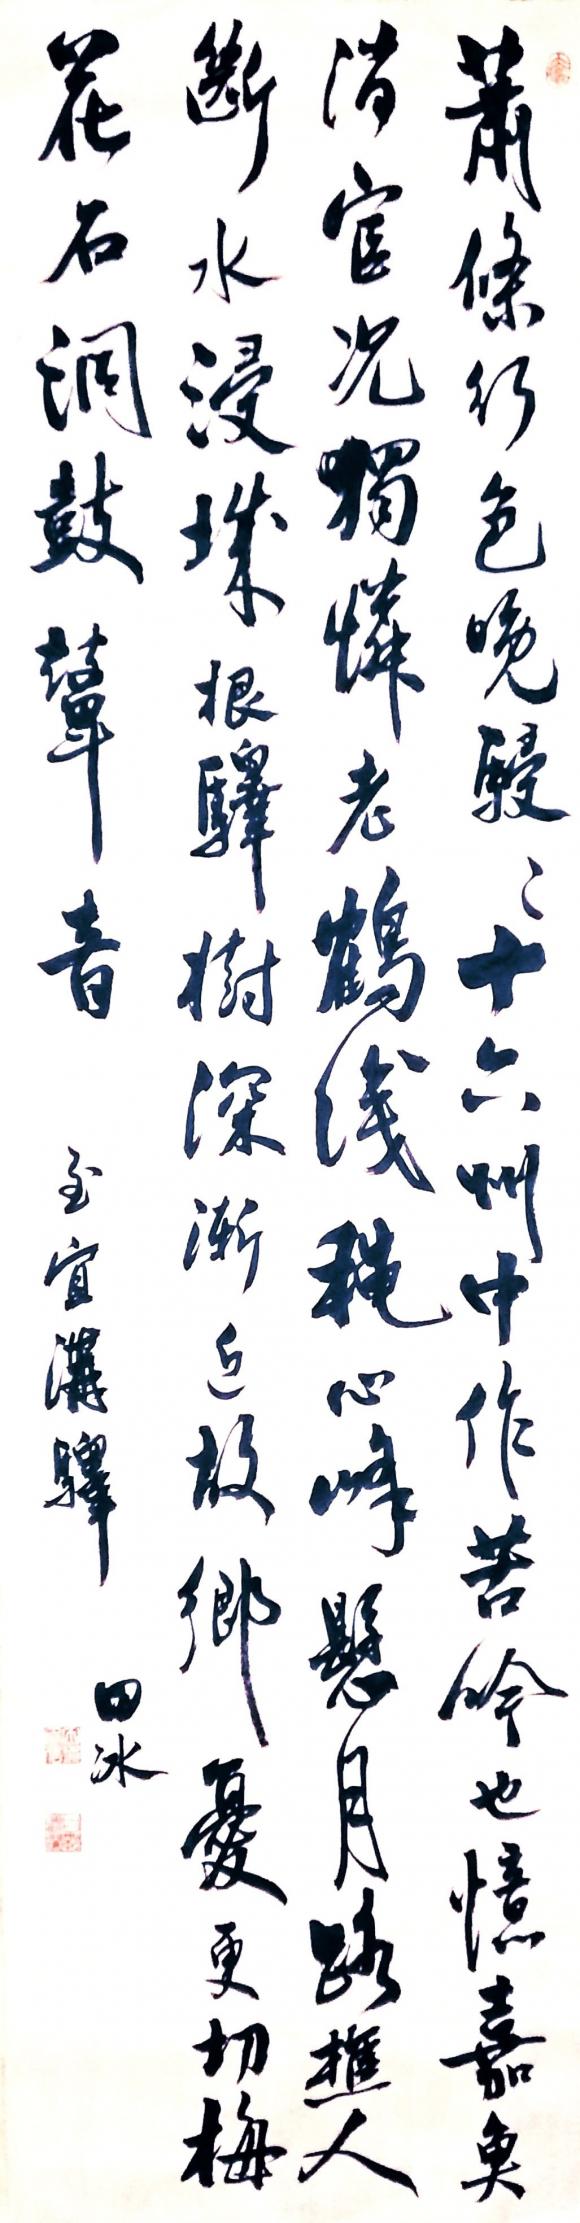 蕭條行色晚駸〻十六州中作苦吟也憶嘉魚
消宦況獨憐老鶴心峰懸月路樵人
斷水浸城根驛樹深漸近故鄉憂更切梅
花石洞鼓鼙音
至宜溝驛
田冰